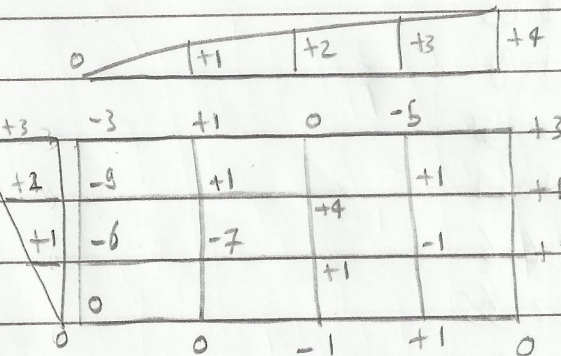 0 +1 +2 +3 +4
+3 -3 +1 0 -5 +3
+2 -9 +1 +1
+4
+1 -6 -7 -1
+1
0
0 0 -1 +1 0